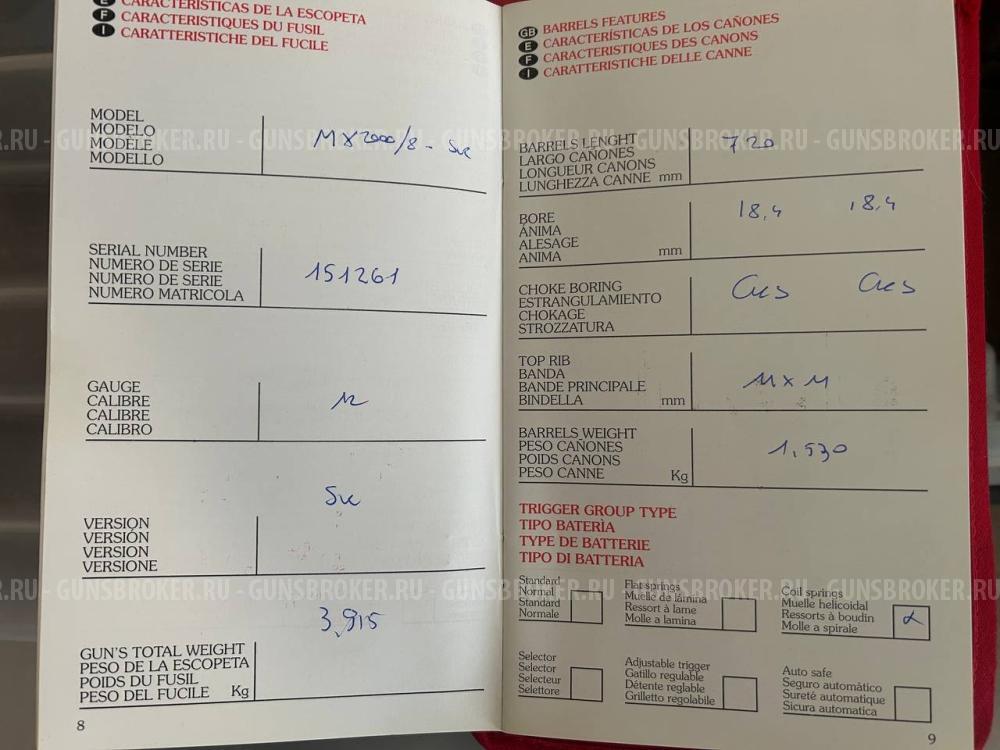 CARACTERÍSTICAS DE LA ESCOPETA
F CARACTERISTIQUES DU FUSIL
I CARATTERISTICHE DEL FUCILE
MODEL
MODELO
MODÈLE
MODELLO
MX2000/8 - Sve
SERIAL NUMBER
NUMERO DE SERIE
NUMERO DE SERIE
NUMERO MATRICOLA
151261
GAUGE
CALIBRE
CALIBRE
CALIBRO
12
VERSION
VERSIÓN
VERSION
VERSIONE
GUN'S TOTAL WEIGHT
PESO DE LA ESCOPETA
POIDS DU FUSIL
PESO DEL FUCILE Kg
3,915
8
GB BARRELS FEATURES
E CARACTERÍSTICAS DE LOS CAÑONES
F CARACTERISTIQUES DES CANONS
I CARATTERISTICHE DELLE CANNE
BARRELS LENGHT
LARGO CAÑONES
LONGUEUR CANONS
LUNGHEZZA CANNE mm
720
BORE
ÁNIMA
ALESAGE
ANIMA mm
18,4 18,4
CHOKE BORING
ESTRANGULAMIENTO
CHOKAGE
STROZZATURA
TOP RIB
BANDA
BANDE PRINCIPALE
BINDELLA mm
11 x 11
BARRELS WEIGHT
PESO CAÑONES
POIDS CANONS
PESO CANNE Kg
1,530
TRIGGER GROUP TYPE
TIPO BATERÌA
TYPE DE BATTERIE
TIPO DI BATTERIA
Standard
Normal
Standard
Normale
Flat springs
Muelle de lámina
Ressort à lame
Molle a lamina
Coil springs
Muelle helicoidal
Ressorts à boudin
Molle a spirale
Selector
Selector
Selecteur
Selettore
Adjustable trigger
Gatillo regulable
Détente reglable
Grilletto regolabile
Auto safe
Seguro automàtico
Sureté automatique
Sicura automatica
9
.RU - GUNSBROKER.RU - GUNSBROKER.RU - GUNSBROKER.RU - GUNSBROKER.RU
.RU - GUNSBROKER.RU - GUNSBROKER.RU - GUNSBROKER.RU - GUNSBROKER.RU